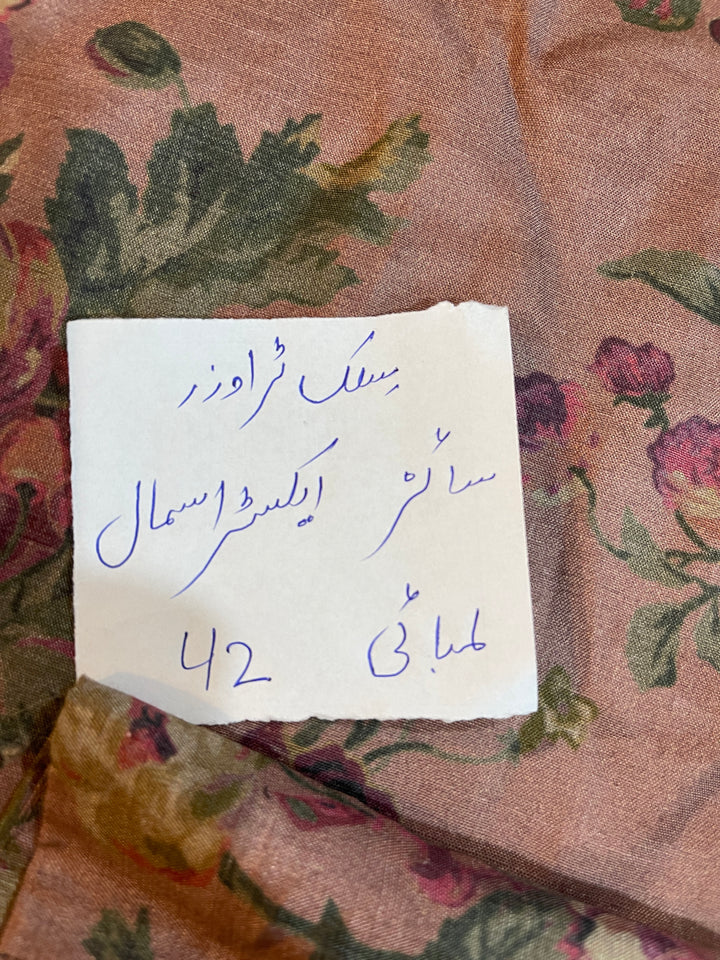 سلک ٹراوزر
سائز ایکسٹرا سمال
لمبائی 42